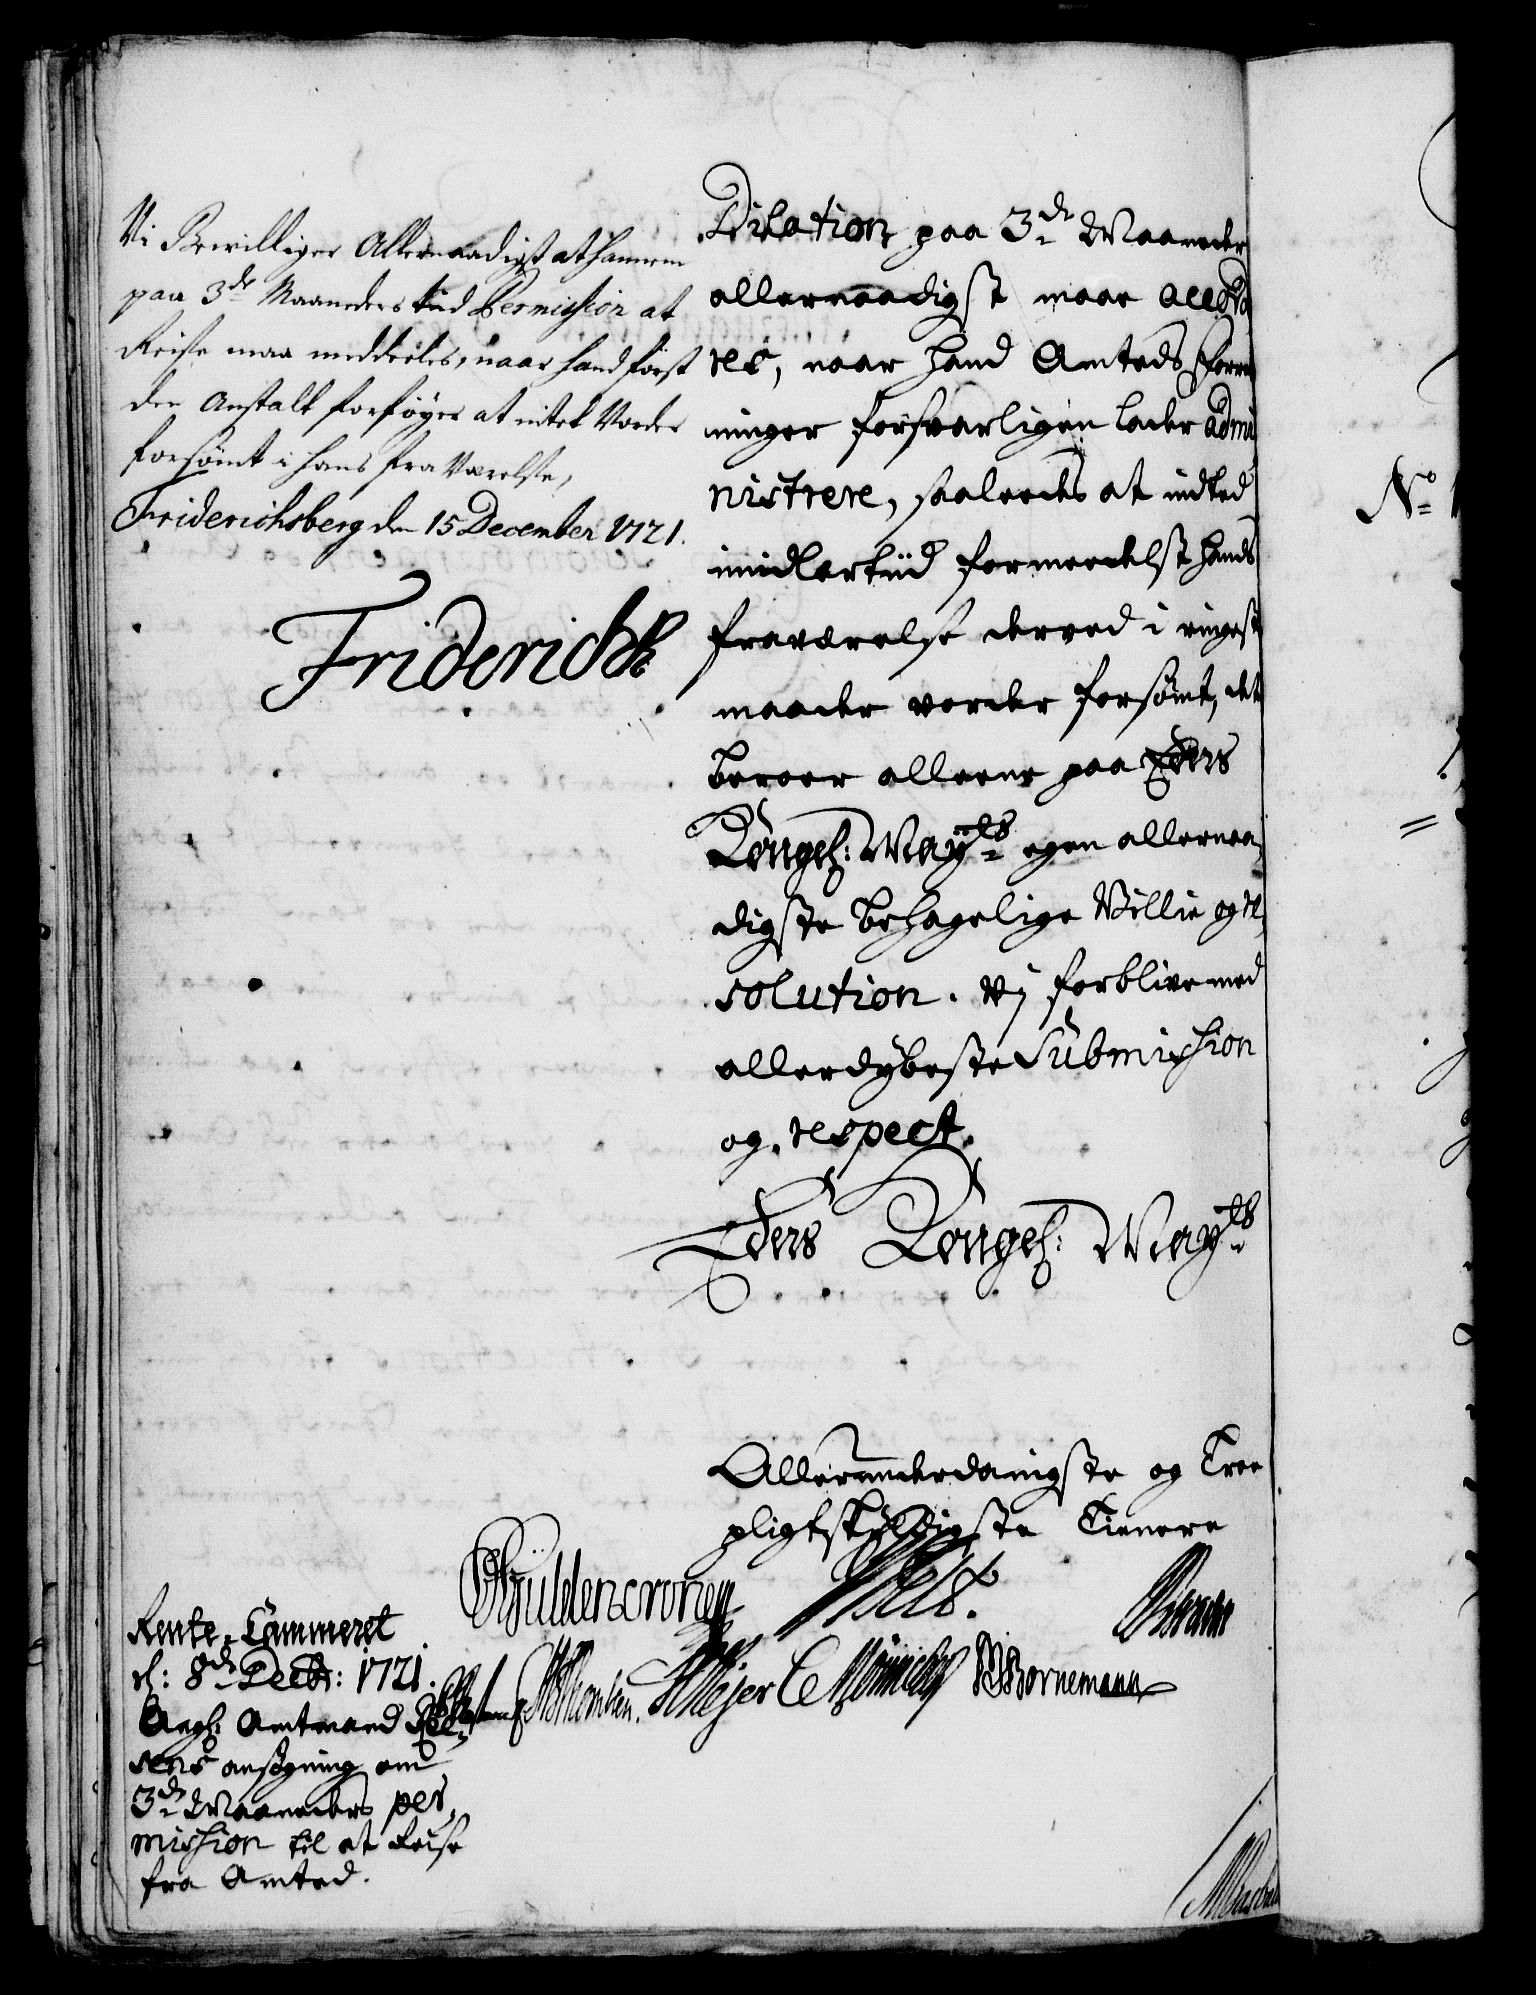 Vi Bewilliger Allernaadigst at hannem
paa 3de Maaneders tid Permission at
Reise maa meddeeles, naar hand först
den Anstalt forföyer at intet Vorder
forsömt i hans fra Værelse,
Friderichsberg den 15 December 1721.
Friderich R
Dilation paa 3de Maaneder
allernaadigst maae accorde
res, naar hand Amteds forret
ninger forsvarligen lader admi
nistrere, saaledes at indted
imidlertiid formedelst hands
fraværelse derved i ringeste
maader vorder forsömt, det
beroer alleene paa Eders
Kongel: May:ts egen allernaa
digste behagelige Villie og re
solution. Vj forblive med
allerdybeste Submission
og respect.
Eders Kongel: May:ts
Allerunderdanigste og Troe
pligtskyldigste Tienere
Gyldencronen
Thomsen. Meyer C Mönnichs Bornemann
Rente-Cammeret
d: 8de Decbr: 1721.
Angl: Amtmand
sens ansögning om
3de Maaneders per
mission til at Reise
fra Amted.
No